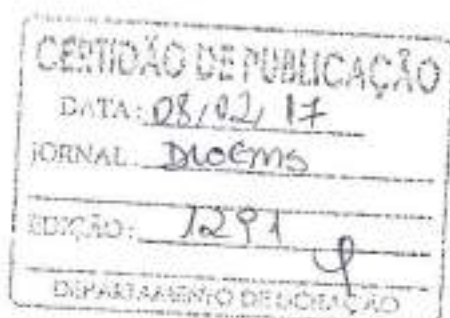 CERTIDÃO DE PUBLICAÇÃO
DATA: 08/02/17
JORNAL: DIOEMS
EDIÇÃO: 1291
DEPARTAMENTO DE LICITAÇÃO